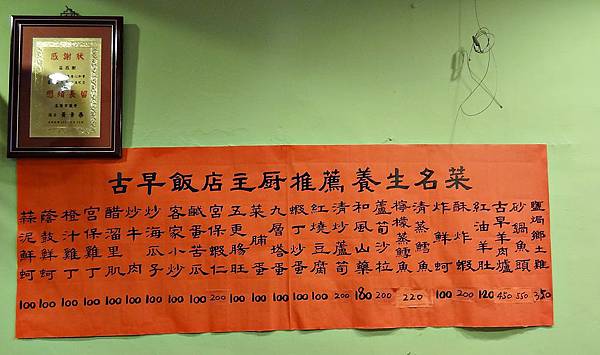 感謝狀
惠贈長留
古早飯店主厨推薦養生名菜
鹽焗鄉土雞 350
砂鍋魚頭 550
古早羊肉爐 450
紅油羊肚 120
酥炸蝦 200
炸鮮蚵 100
清蒸鱈魚
檸檬蒸鱈魚 220
蘆筍沙拉 200
和風山藥 180
清炒蘆筍 200
紅燒豆腐 100
蝦丁炒蛋 100
九層塔蛋 100
菜脯蛋 100
五更腸旺 100
宮保蝦仁 200
鹹蛋苦瓜 100
客家小炒 100
炒海瓜子 100
炒牛肉 100
醋溜里肌 100
宮保雞丁 100
橙汁雞丁 100
蔭鼓鮮蚵 100
蒜泥鮮蚵 100